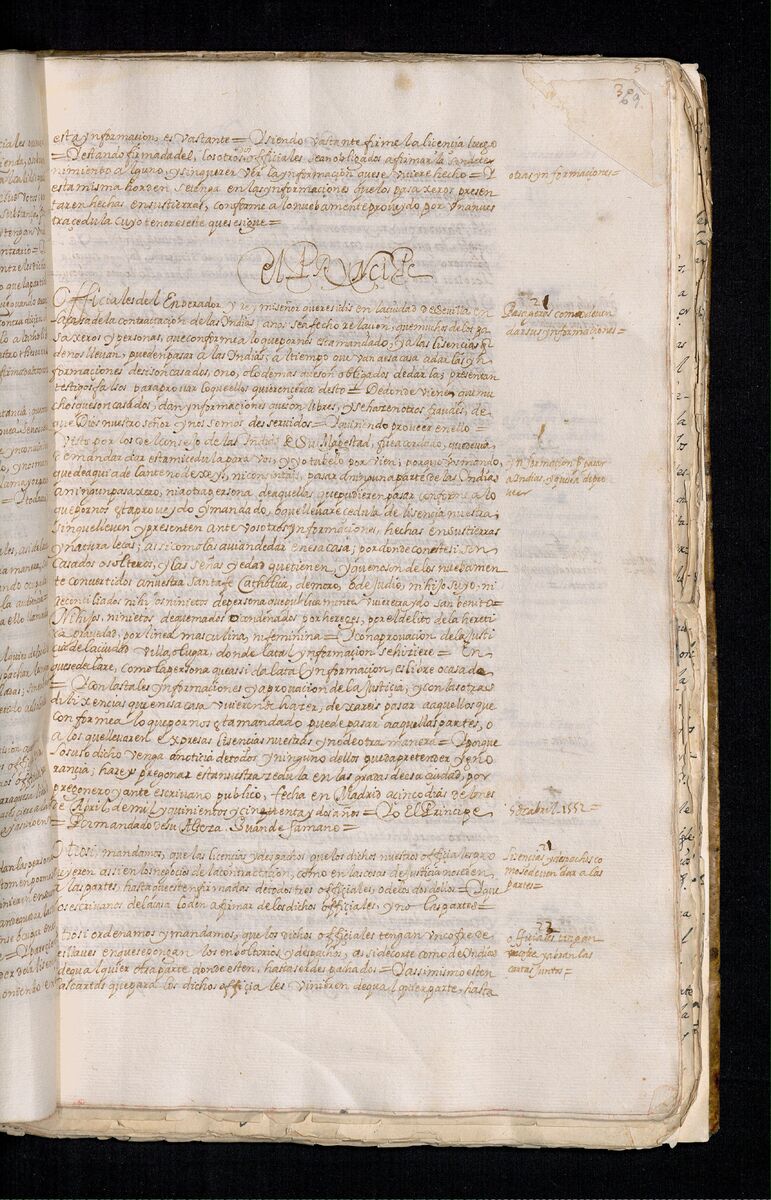 esta ynformacion, es vastante = Y siendo vastante firme la licençia luego
= Y estando firmada del, los otros officiales sean obligados a firmarla sin dete
nimiento alguno, y sin querer ver la ynformaçion que se uviere hecho = Y
esta misma horden se tenga en las ynformaçiones que los pasaxeros presen
taren hechas en sus tierras, conforme a lo nuebamente proveydo por una nues
tra cedula cuyo tenor es este que se sigue =
otras ynformaciones =
El Prynçipe
Officiales del Enperador y rey mi señor que residis en la ciudad de Sevilla en
la casa de la contractaçion de las Yndias; a nos sea fecho relaçion, que muchos de los pa
saxeros y personas, que conforme a lo que por nos esta mandado, y a las liçençias que
de nos llevan, pueden pasar a las Yndias, al tiempo que van a esa casa a dar las yn
formaçiones de si son casados, o no, o lo demas que son obligados de dar la; presentan
testigos falsos para provar lo que ellos quieren çerca desto = De donde viene, que mu
chos que son casados, dan ynformaçiones que son libres, y se hazen otros fraudes, de
que Dios nuestro señor y nos somos deservidos = Y queriendo proveer en ello =
Visto por los del Consejo de las Yndias de Su Magestad, fue acordado, que devia
de mandar dar esta mi cedula para vos, y yo tubelo por vien; porque vos mando,
que de aqui adelante no dexeis, ni consintais, pasar a ninguna parte de las Yndias
a ningun pasaxero, ni a otra persona, de aquellas que pudieren pasar conforme a lo
que por nos esta proveydo y mandado, o que llevare cedula de liçençia nuestra;
sin que lleven y presenten ante vosotros ynformaçiones, hechas en sus tierras
y naturalezas; assi como las avian de dar en esa casa; por donde conste si son
casados o solteros, y las señas y edad que tienen, y que no son de los nuebamente
convertidos a nuestra santa fe Catholica, de moro, o de judio, ni hijo suyo, ni
reconçiliados ni hijos ni nietos de persona que publicamente uviere traydo sanbenito =
Ni hijos, ni nietos de quemados o condenados por hereges, por el delito de la hereti
ca pravedad, por linea masculina, ni feminina = Y con aprovaçion de la Justi
cia de la ciudad villa, o lugar, donde la tal ynformaçion se hiziere = En
que se declare, como la persona que assi da la tal ynformaçion, es libre o casado
= Y con las tales ynformaçiones y aprovaçion de la Justiçia, y con las otras
dilixençias que en esa casa vieren de hazer, dexareis pasar a aquellos que
conforme a lo que por nos esta mandado puede pasar a aquellas partes, o
a los que llevaren expresas liçençias nuestras y no de otra manera = Y porque
lo susodicho venga a notiçia de todos y ninguno dellos pueda pretender yno
rançia; hareis pregonar esta nuestra cedula en las gradas de esa ciudad, por
pregonero y ante escrivano publico, fecha en Madrid a cinco dias de mes
de Abril, de mil y quinientos y cinquenta y dos años = Yo El Principe
= Por mandado de su Alteza. Juan de Samano =
21
Pasageros como deven
dar sus ynformaciones =
ynformacion para pasar
a Indias, y que sea de pro
ver
5 de abril 1552 =
Otrosi, mandamos, que las licençias y despachos que los dichos nuestros offiçiales pro
veyeren assi en los negoçios de la contractaçion, como en las cosas de justiçia no se den,
a las partes, hasta que esten firmados de todos tres offiçiales, o de los dos dellos = Y que
los escrivanos de la casa lo den a firmar de los dichos offiçiales, y no las partes =
21
Licencias y despachos co
mo se deven dar a las
partes =
Otrosi ordenamos y mandamos, que los dichos officiales tengan un cofre de
tres llaves en que se pongan los enboltorios y despachos, assi de corte como de Yndias
de qualquier otra parte donde esten, hasta ser despachados = Y assimismo esten
las cartas que para los dichos officiales vinieren de qualquier parte, hasta
22
officiales tengan
un cofre y abran las
cartas juntos =